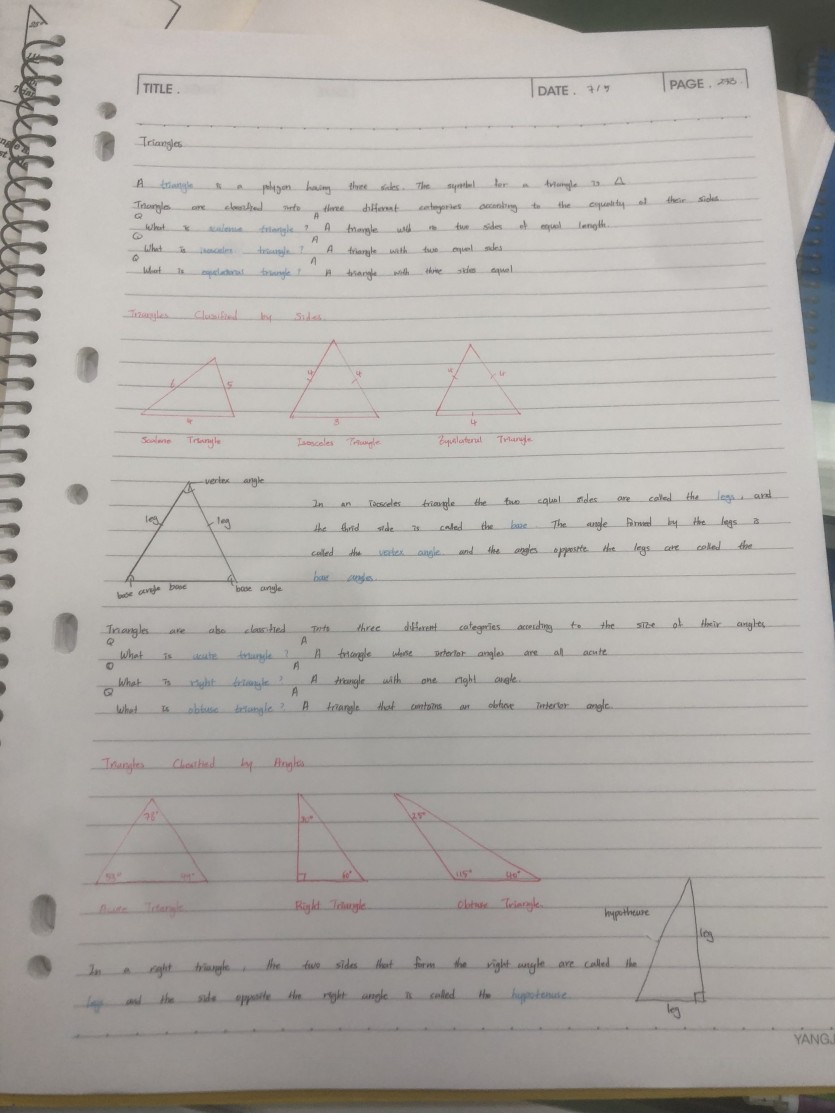 TITLE.
DATE. 7/9
PAGE.
Triangles
A triangle is a polygon having three sides. The symbol for a triangle is △
Triangles are classified into three different categories according to the equality of their sides
Q A
What is scalene triangle? A triangle with no two sides of equal length.
Q A
What is isosceles triangle? A triangle with two equal sides
Q A
What is equilateral triangle? A triangle with three sides equal
Triangles Classified by Sides
6 5 4
4 4 3
4 4 4
Scalene Triangle
Isosceles Triangle
Equilateral Triangle
vertex angle
leg leg
base angle base base angle
In an isosceles triangle the two equal sides are called the legs, and
the third side is called the base. The angle formed by the legs is
called the vertex angle and the angles opposite the legs are called the
base angles.
Triangles are also classified into three different categories according to the size of their angles,
Q A
What is acute triangle? A triangle whose interior angles are all acute
Q A
What is right triangle? A triangle with one right angle.
Q A
What is obtuse triangle? A triangle that contains an obtuse interior angle.
Triangles Classified by Angles
78°
115°
Acute Triangle
Right Triangle
Obtuse Triangle
hypotheure
leg
leg
In a right triangle, the two sides that form the right angle are called the
legs and the side opposite the right angle is called the hypotenuse
YANGJ